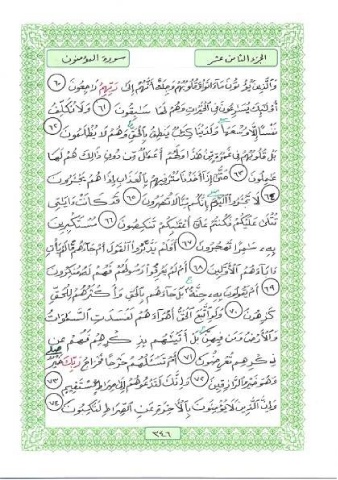 الجزء الثامن عشر
سورة المؤمنون
وَالَّذِينَ يُؤْتُونَ مَا آتَوا وَّقُلُوبُهُمْ وَجِلَةٌ أَنَّهُمْ إِلَىٰ رَبِّهِمْ رَاجِعُونَ ٦٠
أُولَٰئِكَ يُسَارِعُونَ فِي الْخَيْرَاتِ وَهُمْ لَهَا سَابِقُونَ ٦١ وَلَا نُكَلِّفُ
نَفْسًا إِلَّا وُسْعَهَا وَلَدَيْنَا كِتَابٌ يَنطِقُ بِالْحَقِّ وَهُمْ لَا يُظْلَمُونَ ٦٢
بَلْ قُلُوبُهُمْ فِي غَمْرَةٍ مِّنْ هَٰذَا وَلَهُمْ أَعْمَالٌ مِّن دُونِ ذَٰلِكَ هُمْ لَهَا
عَامِلُونَ ٦٣ حَتَّىٰ إِذَا أَخَذْنَا مُتْرَفِيهِم بِالْعَذَابِ إِذَا هُمْ يَجْأَرُونَ
٦٤ لَا تَجْأَرُوا الْيَوْمَ إِنَّكُم مِّنَّا لَا تُنصَرُونَ ٦٥ قَدْ كَانَتْ آيَاتِي
تُتْلَىٰ عَلَيْكُمْ فَكُنتُمْ عَلَىٰ أَعْقَابِكُمْ تَنكِصُونَ ٦٦ مُسْتَكْبِرِينَ
بِهِ سَامِرًا تَهْجُرُونَ ٦٧ أَفَلَمْ يَدَّبَّرُوا الْقَوْلَ أَمْ جَاءَهُم مَّا لَمْ يَأْتِ
آبَاءَهُمُ الْأَوَّلِينَ ٦٨ أَمْ لَمْ يَعْرِفُوا رَسُولَهُمْ فَهُمْ لَهُ مُنكِرُونَ
٦٩ أَمْ يَقُولُونَ بِهِ جِنَّةٌ بَلْ جَاءَهُم بِالْحَقِّ وَأَكْثَرُهُمْ لِلْحَقِّ
كَارِهُونَ ٧٠ وَلَوِ اتَّبَعَ الْحَقُّ أَهْوَاءَهُمْ لَفَسَدَتِ السَّمَاوَاتُ
وَالْأَرْضُ وَمَن فِيهِنَّ بَلْ أَتَيْنَاهُم بِذِكْرِهِمْ فَهُمْ عَن
ذِكْرِهِم مُّعْرِضُونَ ٧١ أَمْ تَسْأَلُهُمْ خَرْجًا فَخَرَاجُ رَبِّكَ خَيْرٌ
وَهُوَ خَيْرُ الرَّازِقِينَ ٧٢ وَإِنَّكَ لَتَدْعُوهُمْ إِلَىٰ صِرَاطٍ مُّسْتَقِيمٍ ٧٣
وَإِنَّ الَّذِينَ لَا يُؤْمِنُونَ بِالْآخِرَةِ عَنِ الصِّرَاطِ لَنَاكِبُونَ ٧٤
٣٤٦